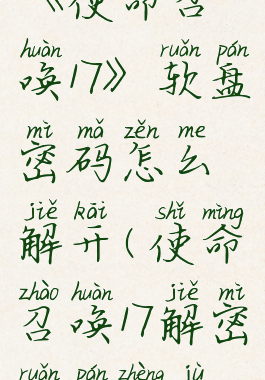 《使命召
huàn ruǎn pán
唤17》 软盘
mì mǎ zěn me
密码怎么
jiě kāi shǐ mìng
解开(使命
zhào huàn jiě mì
召唤17解密
ruǎn pán zhèng jù